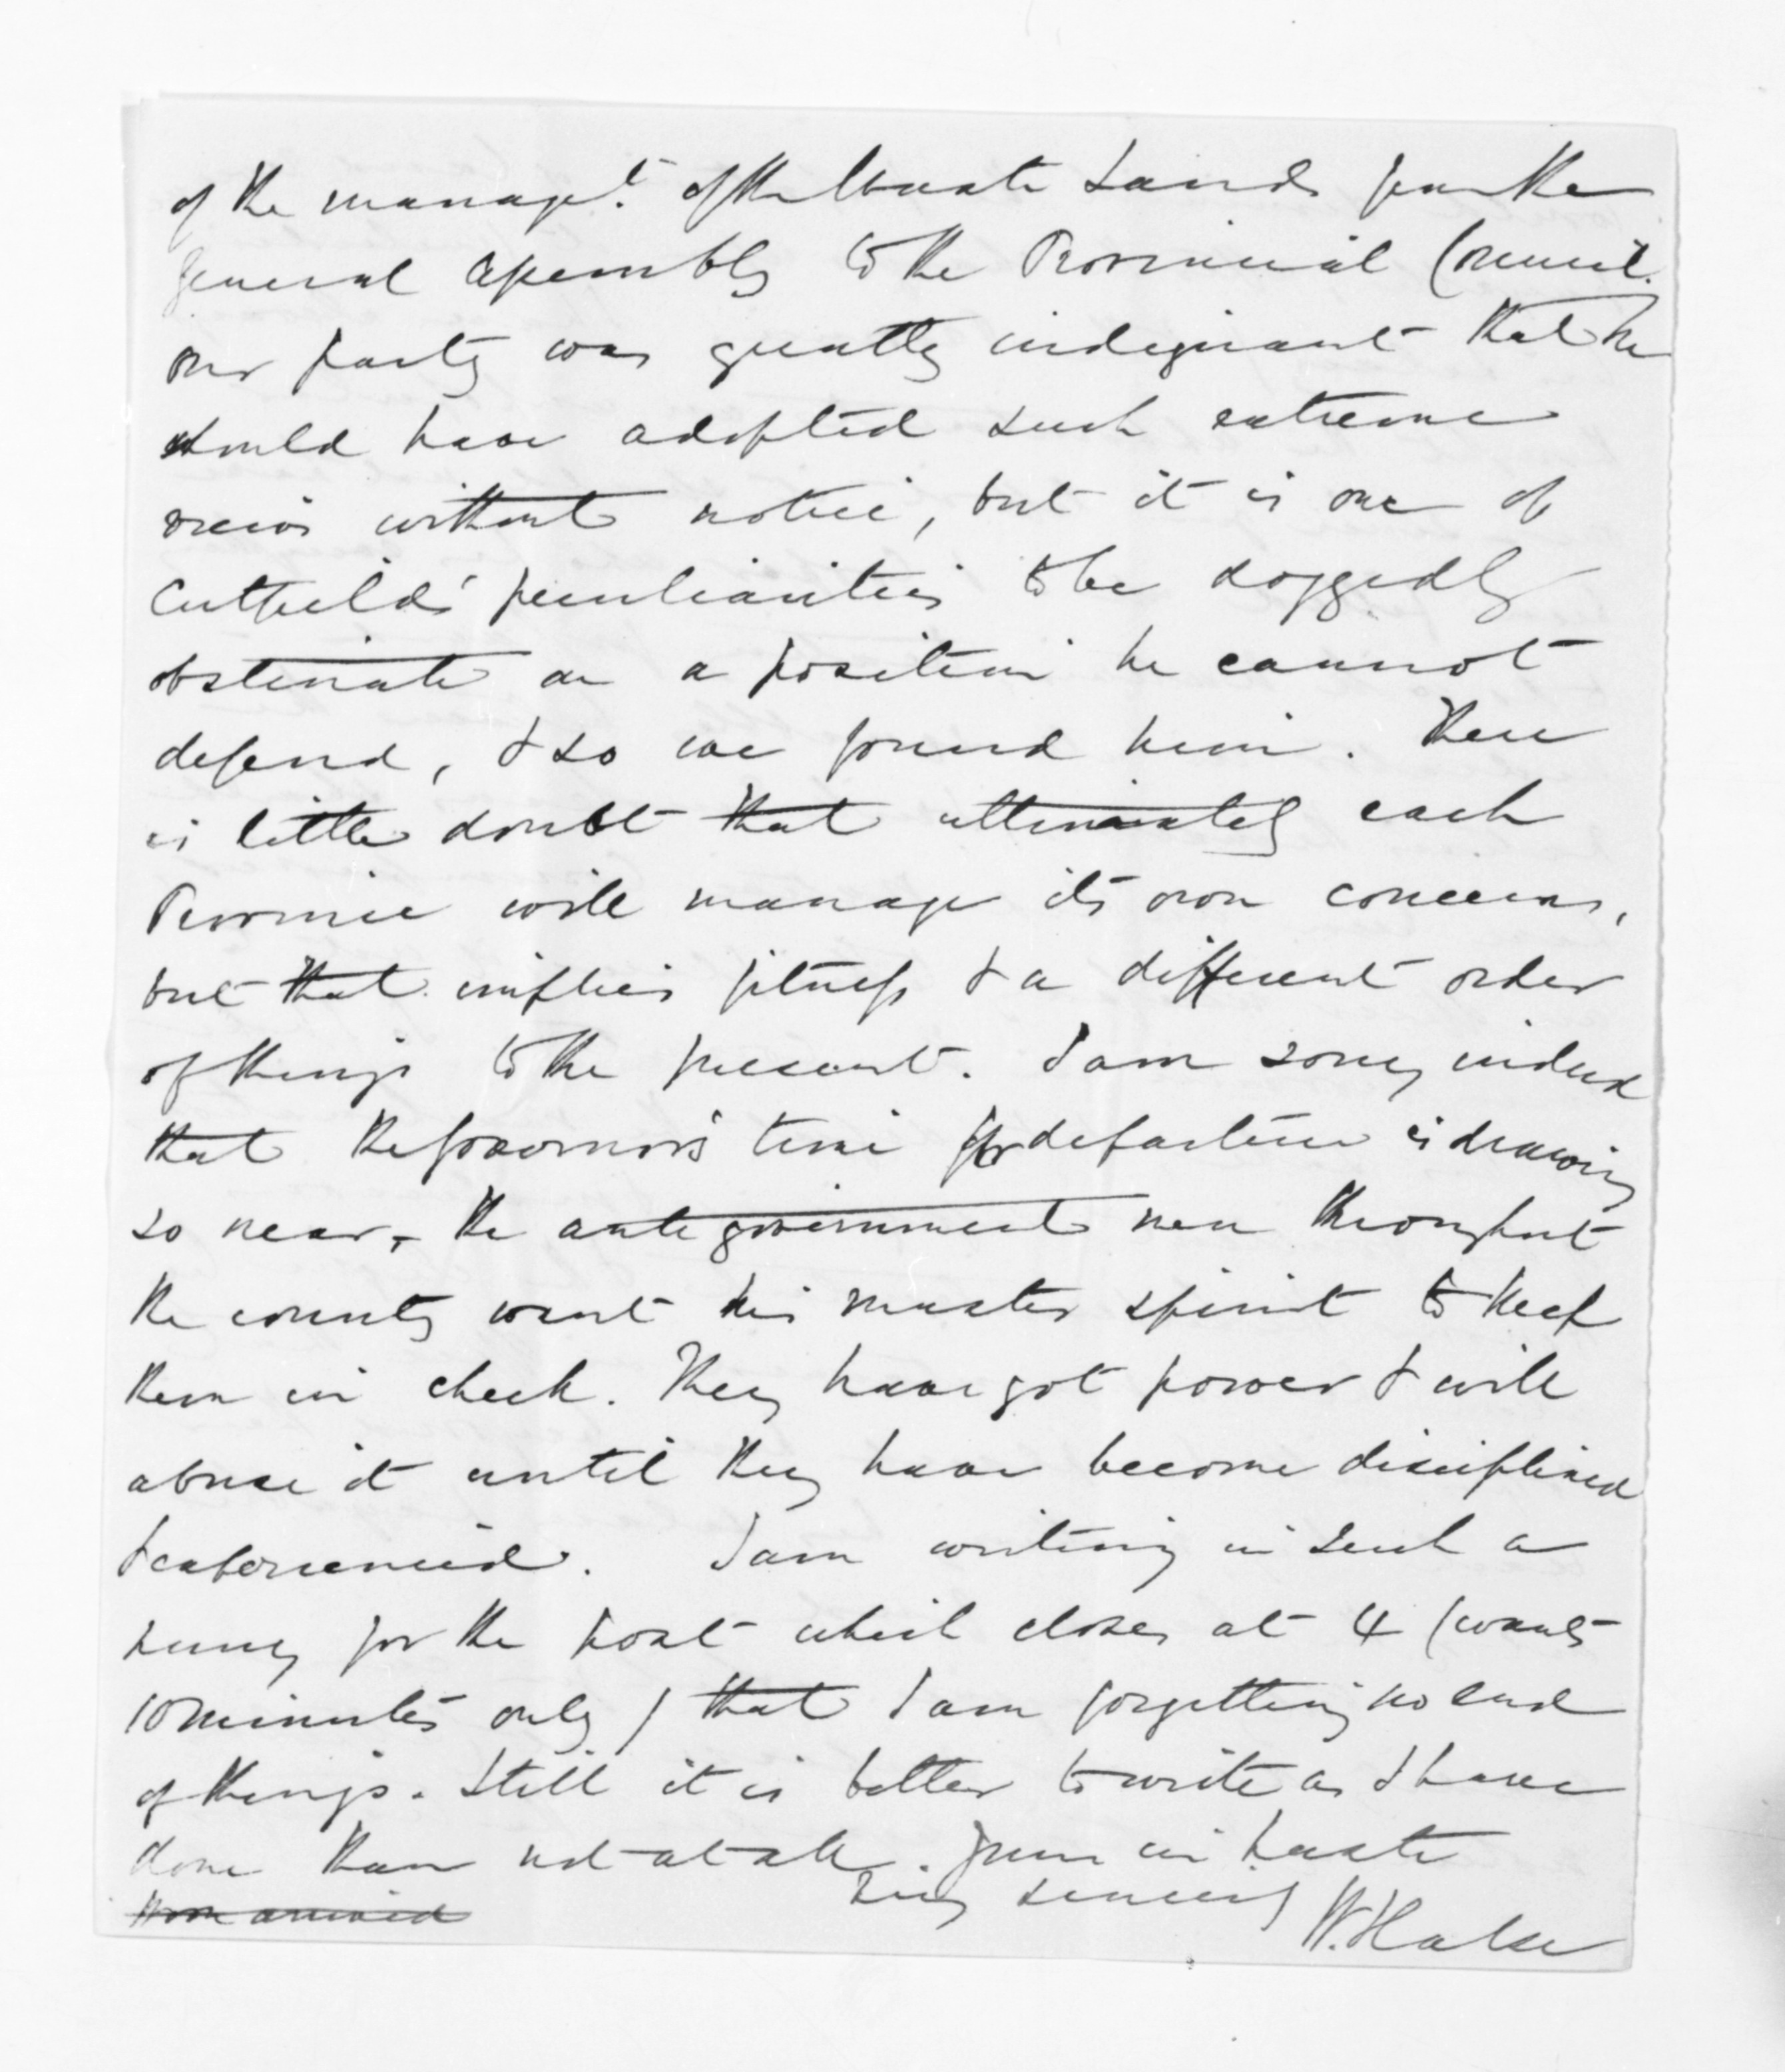 of the managet. of the Waste Lands from the
General Assembly to the Provincial Council.
Our party was greatly indignant that he
should have adopted such extreme
views without notice, but it is one of
Cutfield's peculiarities to be doggedly
obstinate on a position he cannot
defend, & so we found him. There
is little doubt that ultimately each
Province will manage its own concerns,
but that implies fitness & a different order
of things to the present. I am sorry indeed
that the Governor's time for departure is drawing
so near, the antigovernment men throughout
the country want his master spirit to keep
them in check. They have got power & will
abuse it until they have become disciplined
& experienced. I am writing in such a
hurry for the post which closes at 4 (wants
10 minutes only) that I am forgetting no end
of things. Still it is better to write as I have
done than not at all. Yours in haste
very sincerely W. Halse